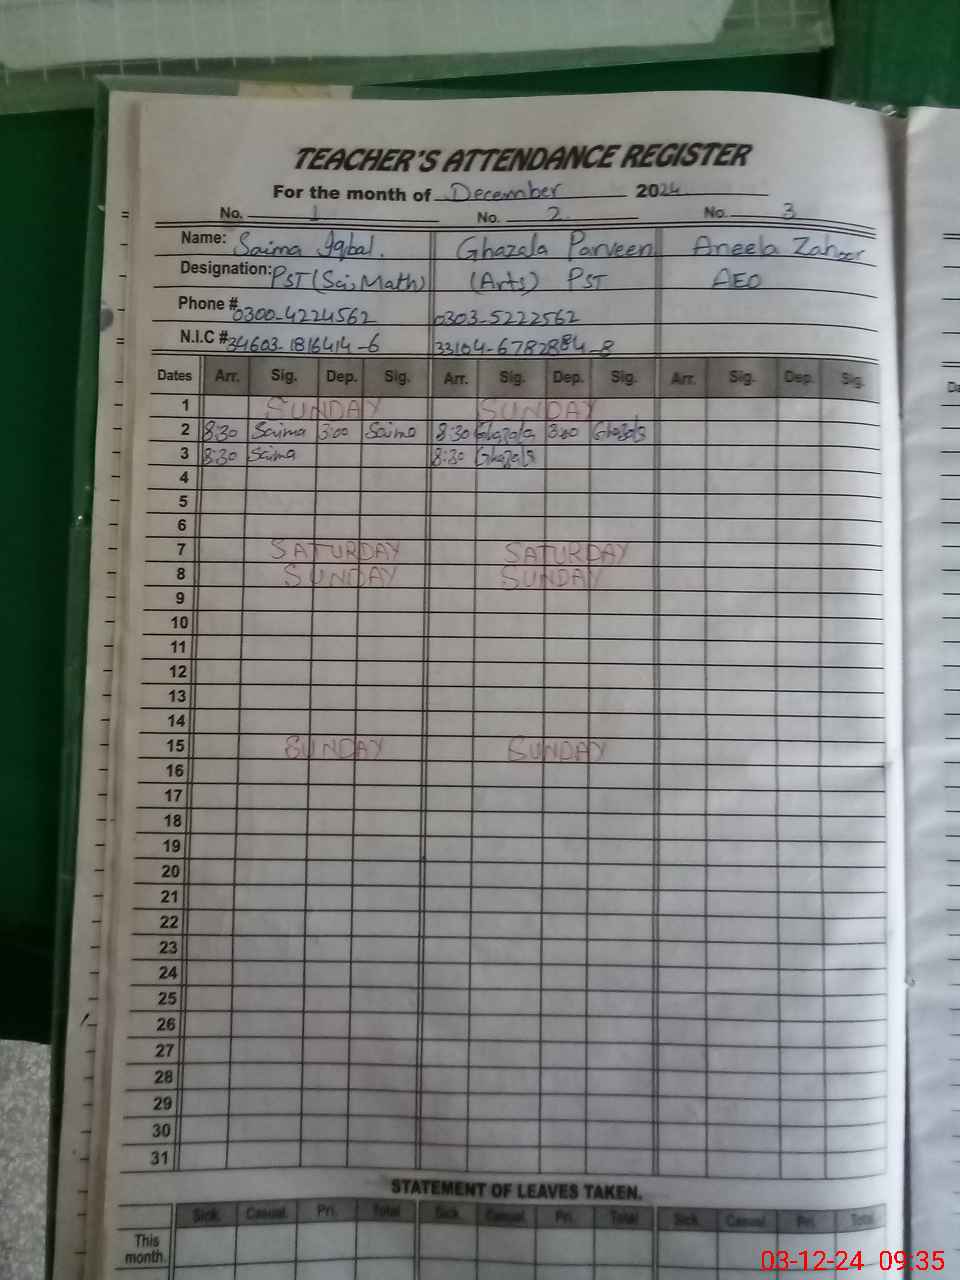 TEACHER'S ATTENDANCE REGISTER
For the month of December 2024
No. 1 No. 2 No. 3
Name: Saima Iqbal. Ghazala Parveen Aneela Zaheer
Designation: PST (Sci, Math) (Arts) PST AEO
Phone # 0300-4224562 0303-5222562
N.I.C # 34603-1816414-6 33104-6782884-8
Dates Arr. Sig. Dep. Sig. Arr. Sig. Dep. Sig. Arr. Sig. Dep. Sig.
1 SUNDAY SUNDAY
2 8:30 Saima 3:00 Saima 8:30 Ghazala 3:00 Ghazala
3 8:30 Saima 8:30 Ghazala
4
5
6
7 SATURDAY SATURDAY
8 SUNDAY SUNDAY
9
10
11
12
13
14
15 SUNDAY SUNDAY
16
17
18
19
20
21
22
23
24
25
26
27
28
29
30
31
STATEMENT OF LEAVES TAKEN.
Sick. Casual. Pri. Total Sick. Casual. Pri. Total Sick. Casual. Pri. Total
This
month.
03-12-24 09:35